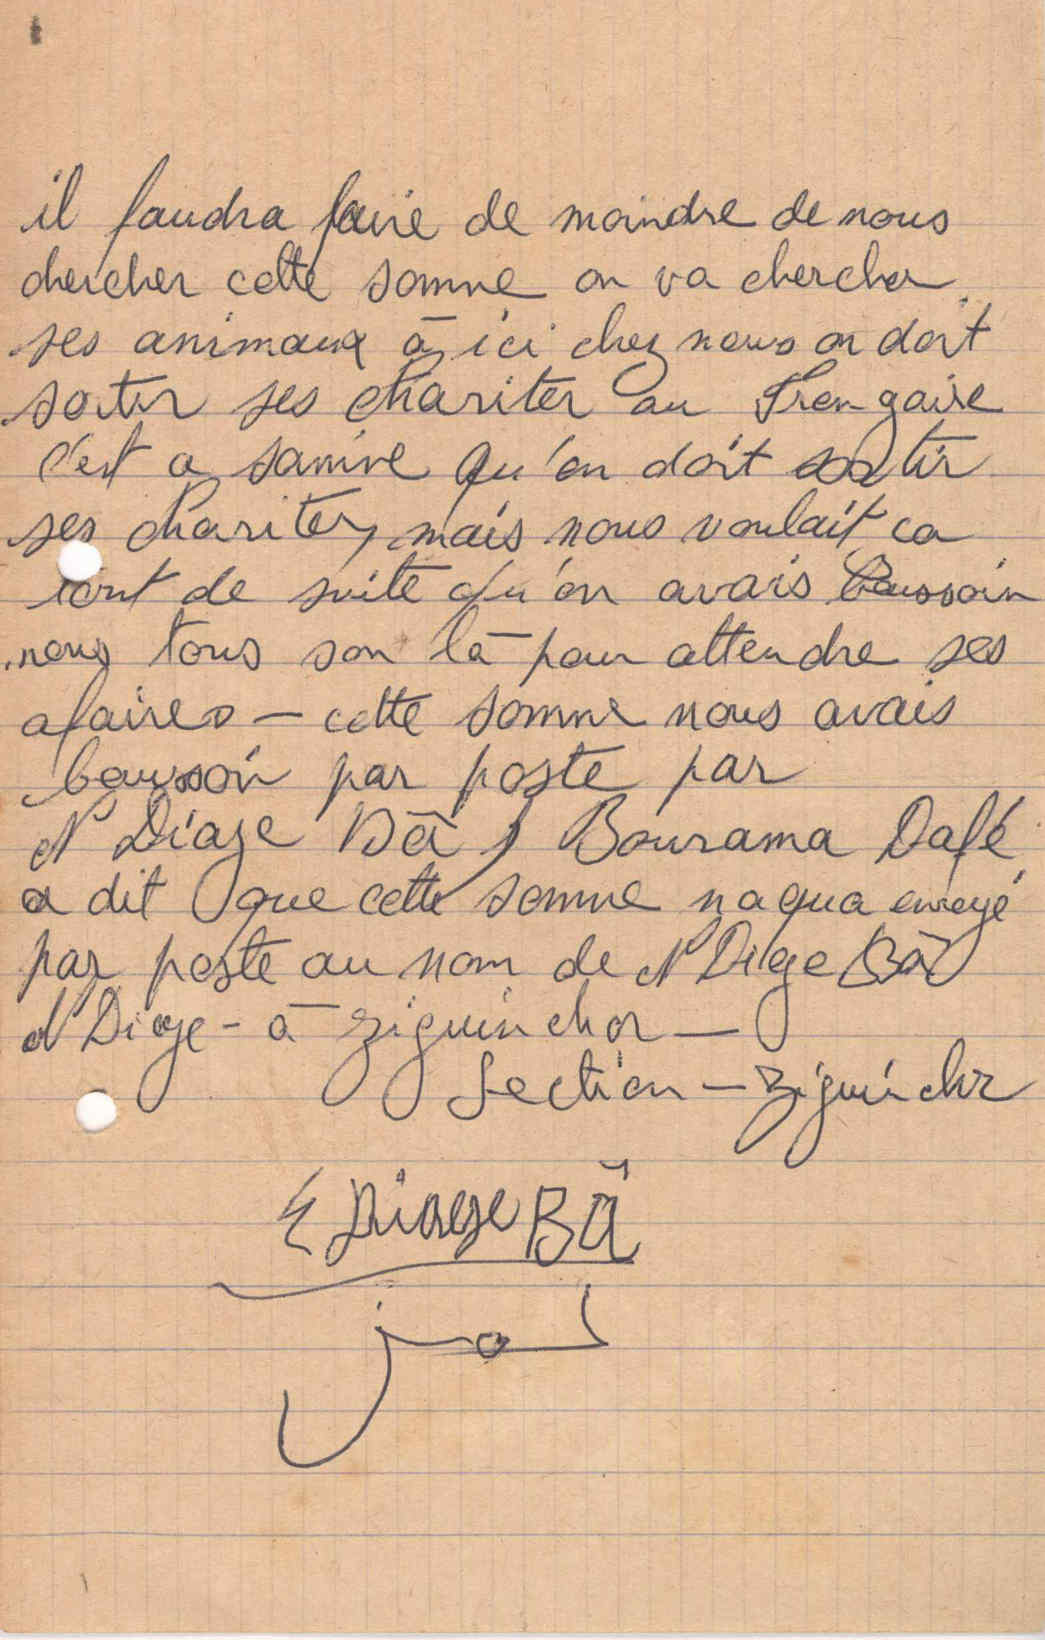 il faudra faire de moindre de nous
chercher cette somme on va chercher
ses animaux à ici chez nous on doit
sortir ses chariter au
c'est a qu'on doit sortir
ses chariter, mais nous voulait ca
tout de suite qu'on avais beussoin
nous tous son là pour attendre ses
afaires — cette somme nous avais
beussoin par poste par
N'Diaye Bâ, Bourama Dafé
a dit que cette somme naqua envoyé
par poste au nom de N'Diaye Bâ
N'Diaye - à Ziguinchor —
Section — Ziguinchor
Diaye Bâ